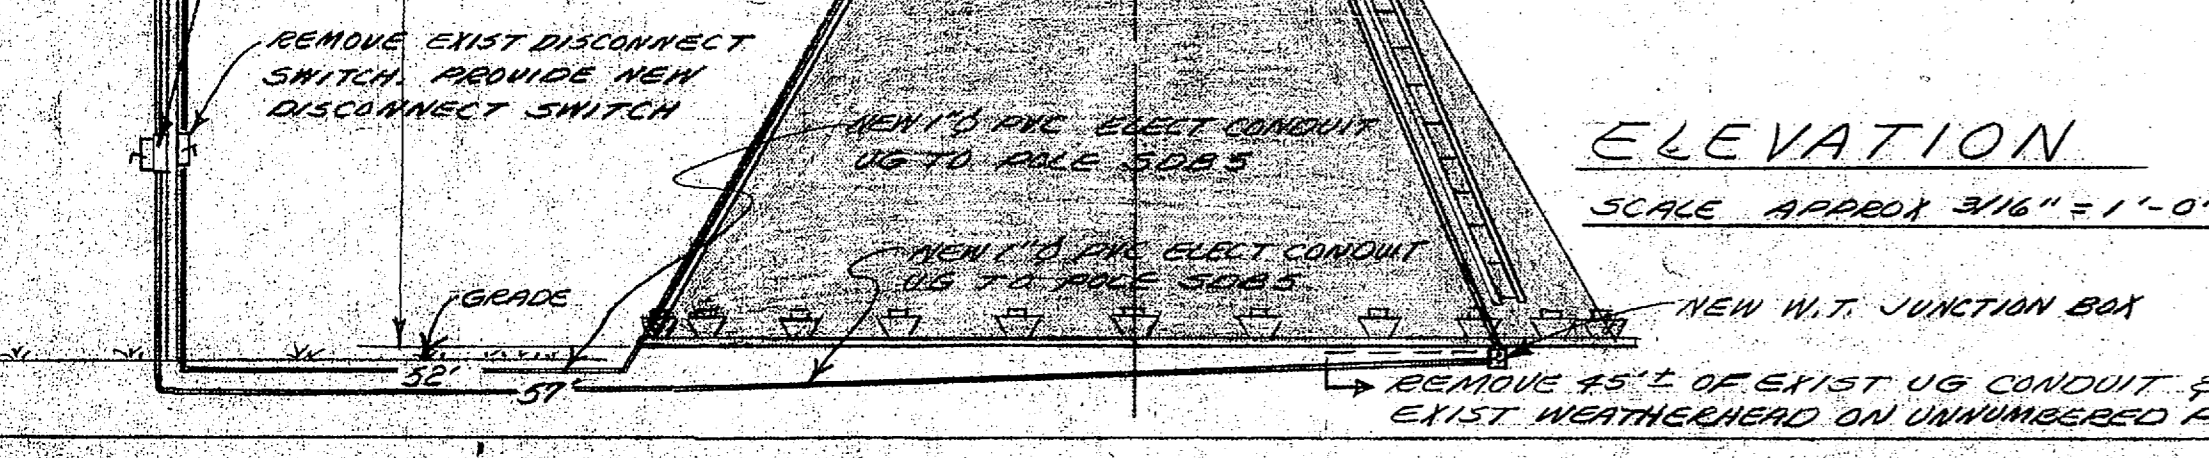 REMOVE EXIST DISCONNECT
SWITCH. PROVIDE NEW
DISCONNECT SWITCH
NEW 1"Ø PVC ELECT CONDUIT
UG TO POLE SDB5
ELEVATION
SCALE APPROX 3/16" = 1'-0"
NEW 1"Ø PVC ELECT CONDUIT
UG TO POLE SDB5
GRADE
NEW W.T. JUNCTION BOX
52'
57'
REMOVE 45'± OF EXIST UG CONDUIT &
EXIST WEATHERHEAD ON UNNUMBERED